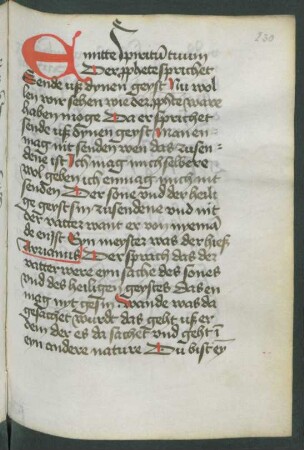 230
Emitte Spiritū tuum
Der pphete sprichet
Sende uß dynen geyst Nu wol
len wir sehen wie der pphete ware
haben moge Da er sprichet
sende uß dynen geyst Man en
mag nit senden wen das zusen
dene ist Ich mag mich selbere
wol geben ich enmag mich nit
senden Der sone vnd der heili
ge geyst sin zusendene vnd nit
der vatter want er von niemā
de en ist Eyn meyster was der hieß
Arrianus Der sprach das der
vatter were eyn sache des sones
vnd des heiligen geystes das en
mag nit gesin Wande was da
gesachet wurdt das geht uß er
dem der es da sachet vnd geht ī
eyn andere nature Du bist ey